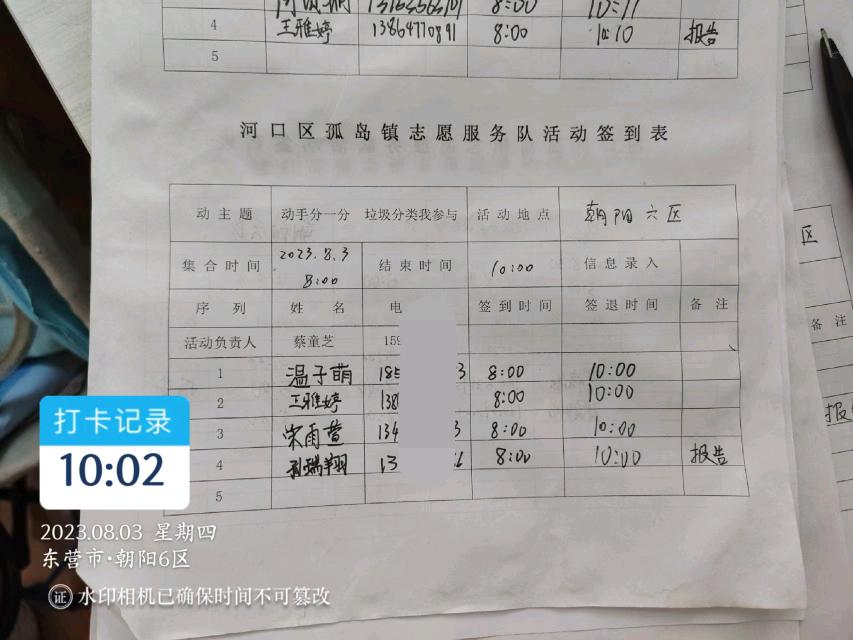 8:00
4 王雅婷 13864770891 8:00 10:10 报告
5
河口区孤岛镇志愿服务队活动签到表
动主题 动手分一分 垃圾分类我参与 活动地点 朝阳六区
集合时间 2023.8.3 8:00 结束时间 10:00 信息录入
序列 姓名 电 签到时间 签退时间 备注
活动负责人 蔡童芝 159
1 温子萌 185 3 8:00 10:00
2 王雅婷 138 8:00 10:00
3 宋雨萱 134 3 8:00 10:00
4 孙瑞翔 13 8:00 10:00 报告
5
区
备注
报
打卡记录
10:02
2023.08.03 星期四
东营市·朝阳6区
证 水印相机已确保时间不可篡改